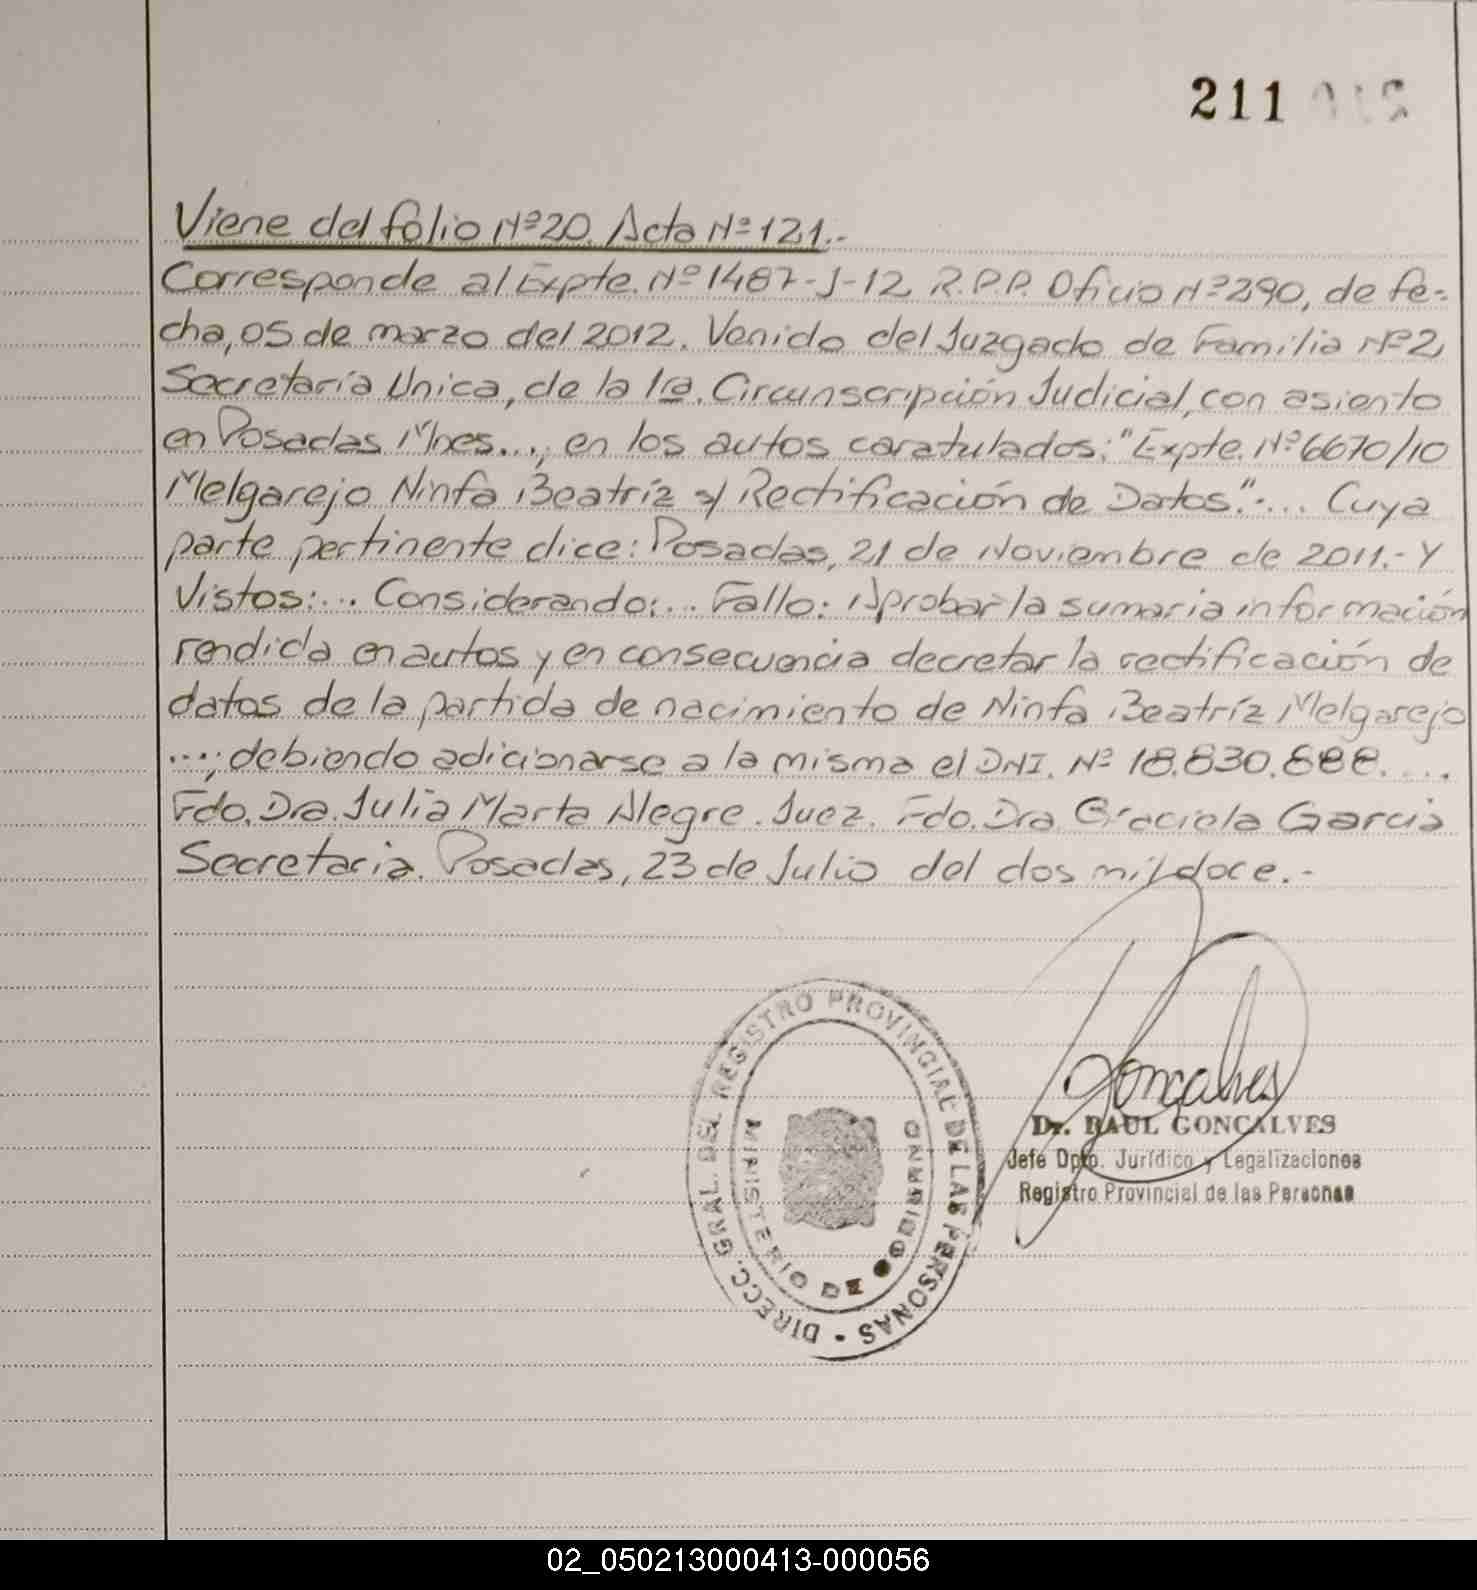 211
Viene del folio Nº20. Acta Nº121.-
Corresponde al Expte. Nº1487-J-12 R.P.P. Oficio Nº290, de fe-
cha, 05 de marzo del 2012. Venido del Juzgado de Familia Nº2,
Secretaría Unica, de la 1ra. Circunscripción Judicial, con asiento
en Posadas Mnes...; en los autos caratulados: "Expte. Nº6670/10
Melgarejo Ninfa Beatríz s/ Rectificación de Datos."-... Cuya
parte pertinente dice: Posadas, 21 de Noviembre de 2011.- Y
Vistos:... Considerando:... Fallo: Aprobar la sumaria información
rendida en autos y en consecuencia decretar la rectificación de
datos de la partida de nacimiento de Ninfa Beatríz Melgarejo
...; debiendo adicionarse a la misma el DNI. Nº 18.830.688. ...
Fdo. Dra. Julia Marta Alegre. Juez. Fdo. Dra Graciela Garcia
Secretaria. Posadas, 23 de Julio del dos mil doce.-
DIRECC. GRAL. DEL REGISTRO PROVINCIAL DE LAS PERSONAS
MINISTERIO DE GOBIERNO
Goncalves
Dr. RAUL GONCALVES
Jefe Dpto. Jurídico y Legalizaciones
Registro Provincial de las Personas
02_050213000413-000056